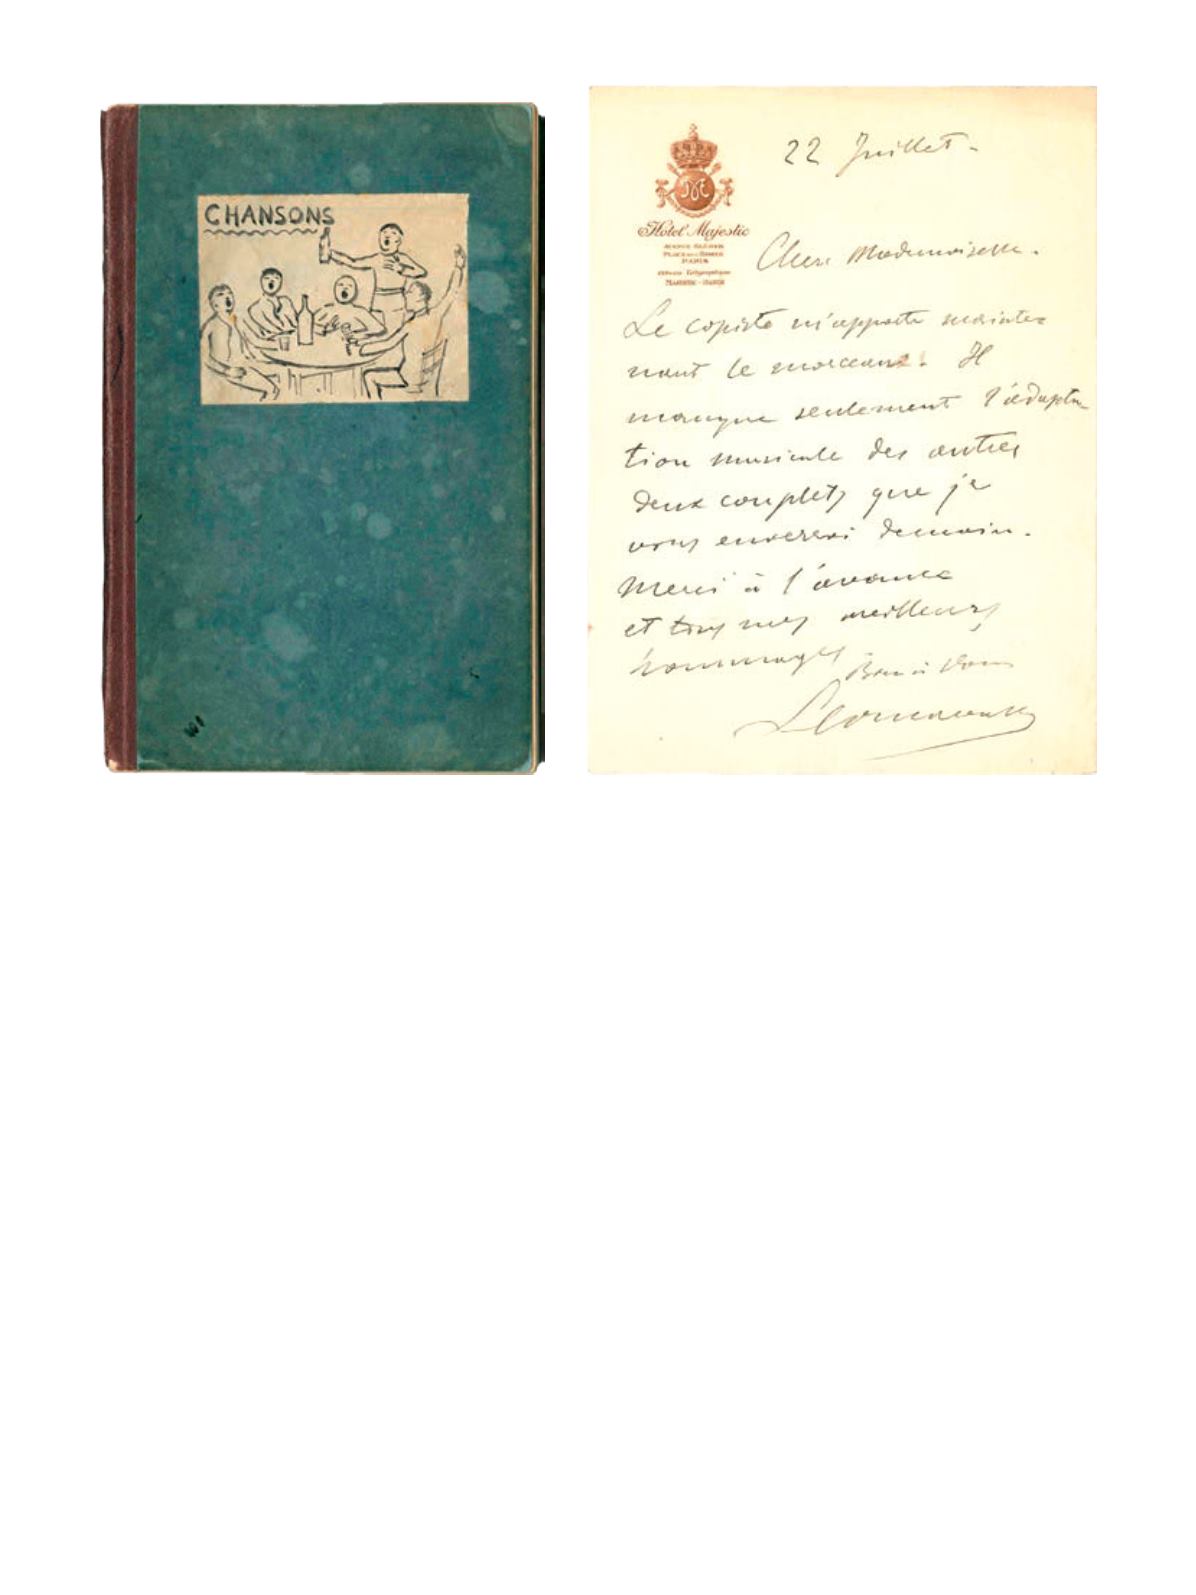 CHANSONS
22 Juillet.
Hôtel Majestic
AVENUE KLÉBER
PARIS
Adresse Télégraphique
MAJESTIC-PARIS
Chere Mademoiselle.
Le copiste m'apporte mainte-
nant le morceau. Il
manque seulement l'adapta
tion musicale des autres
deux couplets que je
vous enverrai demain.
Merci à l'avance
et tous mes meilleurs
hommages.
Bien à Vous
Leoncavallo